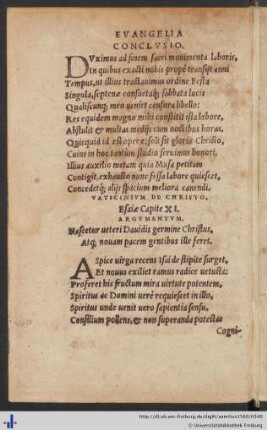 EVANGELIA
CONCLVSIO.
DVximus ad finem sacri monimenta laboris,
In quibus exacti nobis propè transijt anni
Tempus, ut illius tractauimus ordine Festa
Singula, septenæ consuetaq; sabbata lucis
Qualiacunq; meo uenit censura libello:
Res equidem magno mihi constitit ista labore,
Abstulit & multas medijs cum noctibus horas.
Quicquid id est operæ, soli sit gloria Christo,
Cuius in hoc tantùm studio seruimus honori.
Illius auxilio metam quia Musa petitam
Contigit, exhausto nunc fessa labore quiescet,
Concedetq; alijs spacium meliora canendi.
VATICINIVM DE CHRISTO,
Esaiæ Capite XI.
ARGVMENTVM.
Nascetur ueteri Dauidis germine Christus,
Atq; nouam pacem gentibus ille feret.
ASpice uirga recens Isai de stipite surget,
Et nouus exiliet ramus radice uetusta:
Proferet hic fructum mira uirtute potentem,
Spiritus & Domini uerè requiescet in illo,
Spiritus unde uenit uero sapientia sensu,
Consilium pollens, & non superanda potestas
Cogni-
http://dl.ub.uni-freiburg.de/diglit/
© Universitätsbibliothek Freiburg